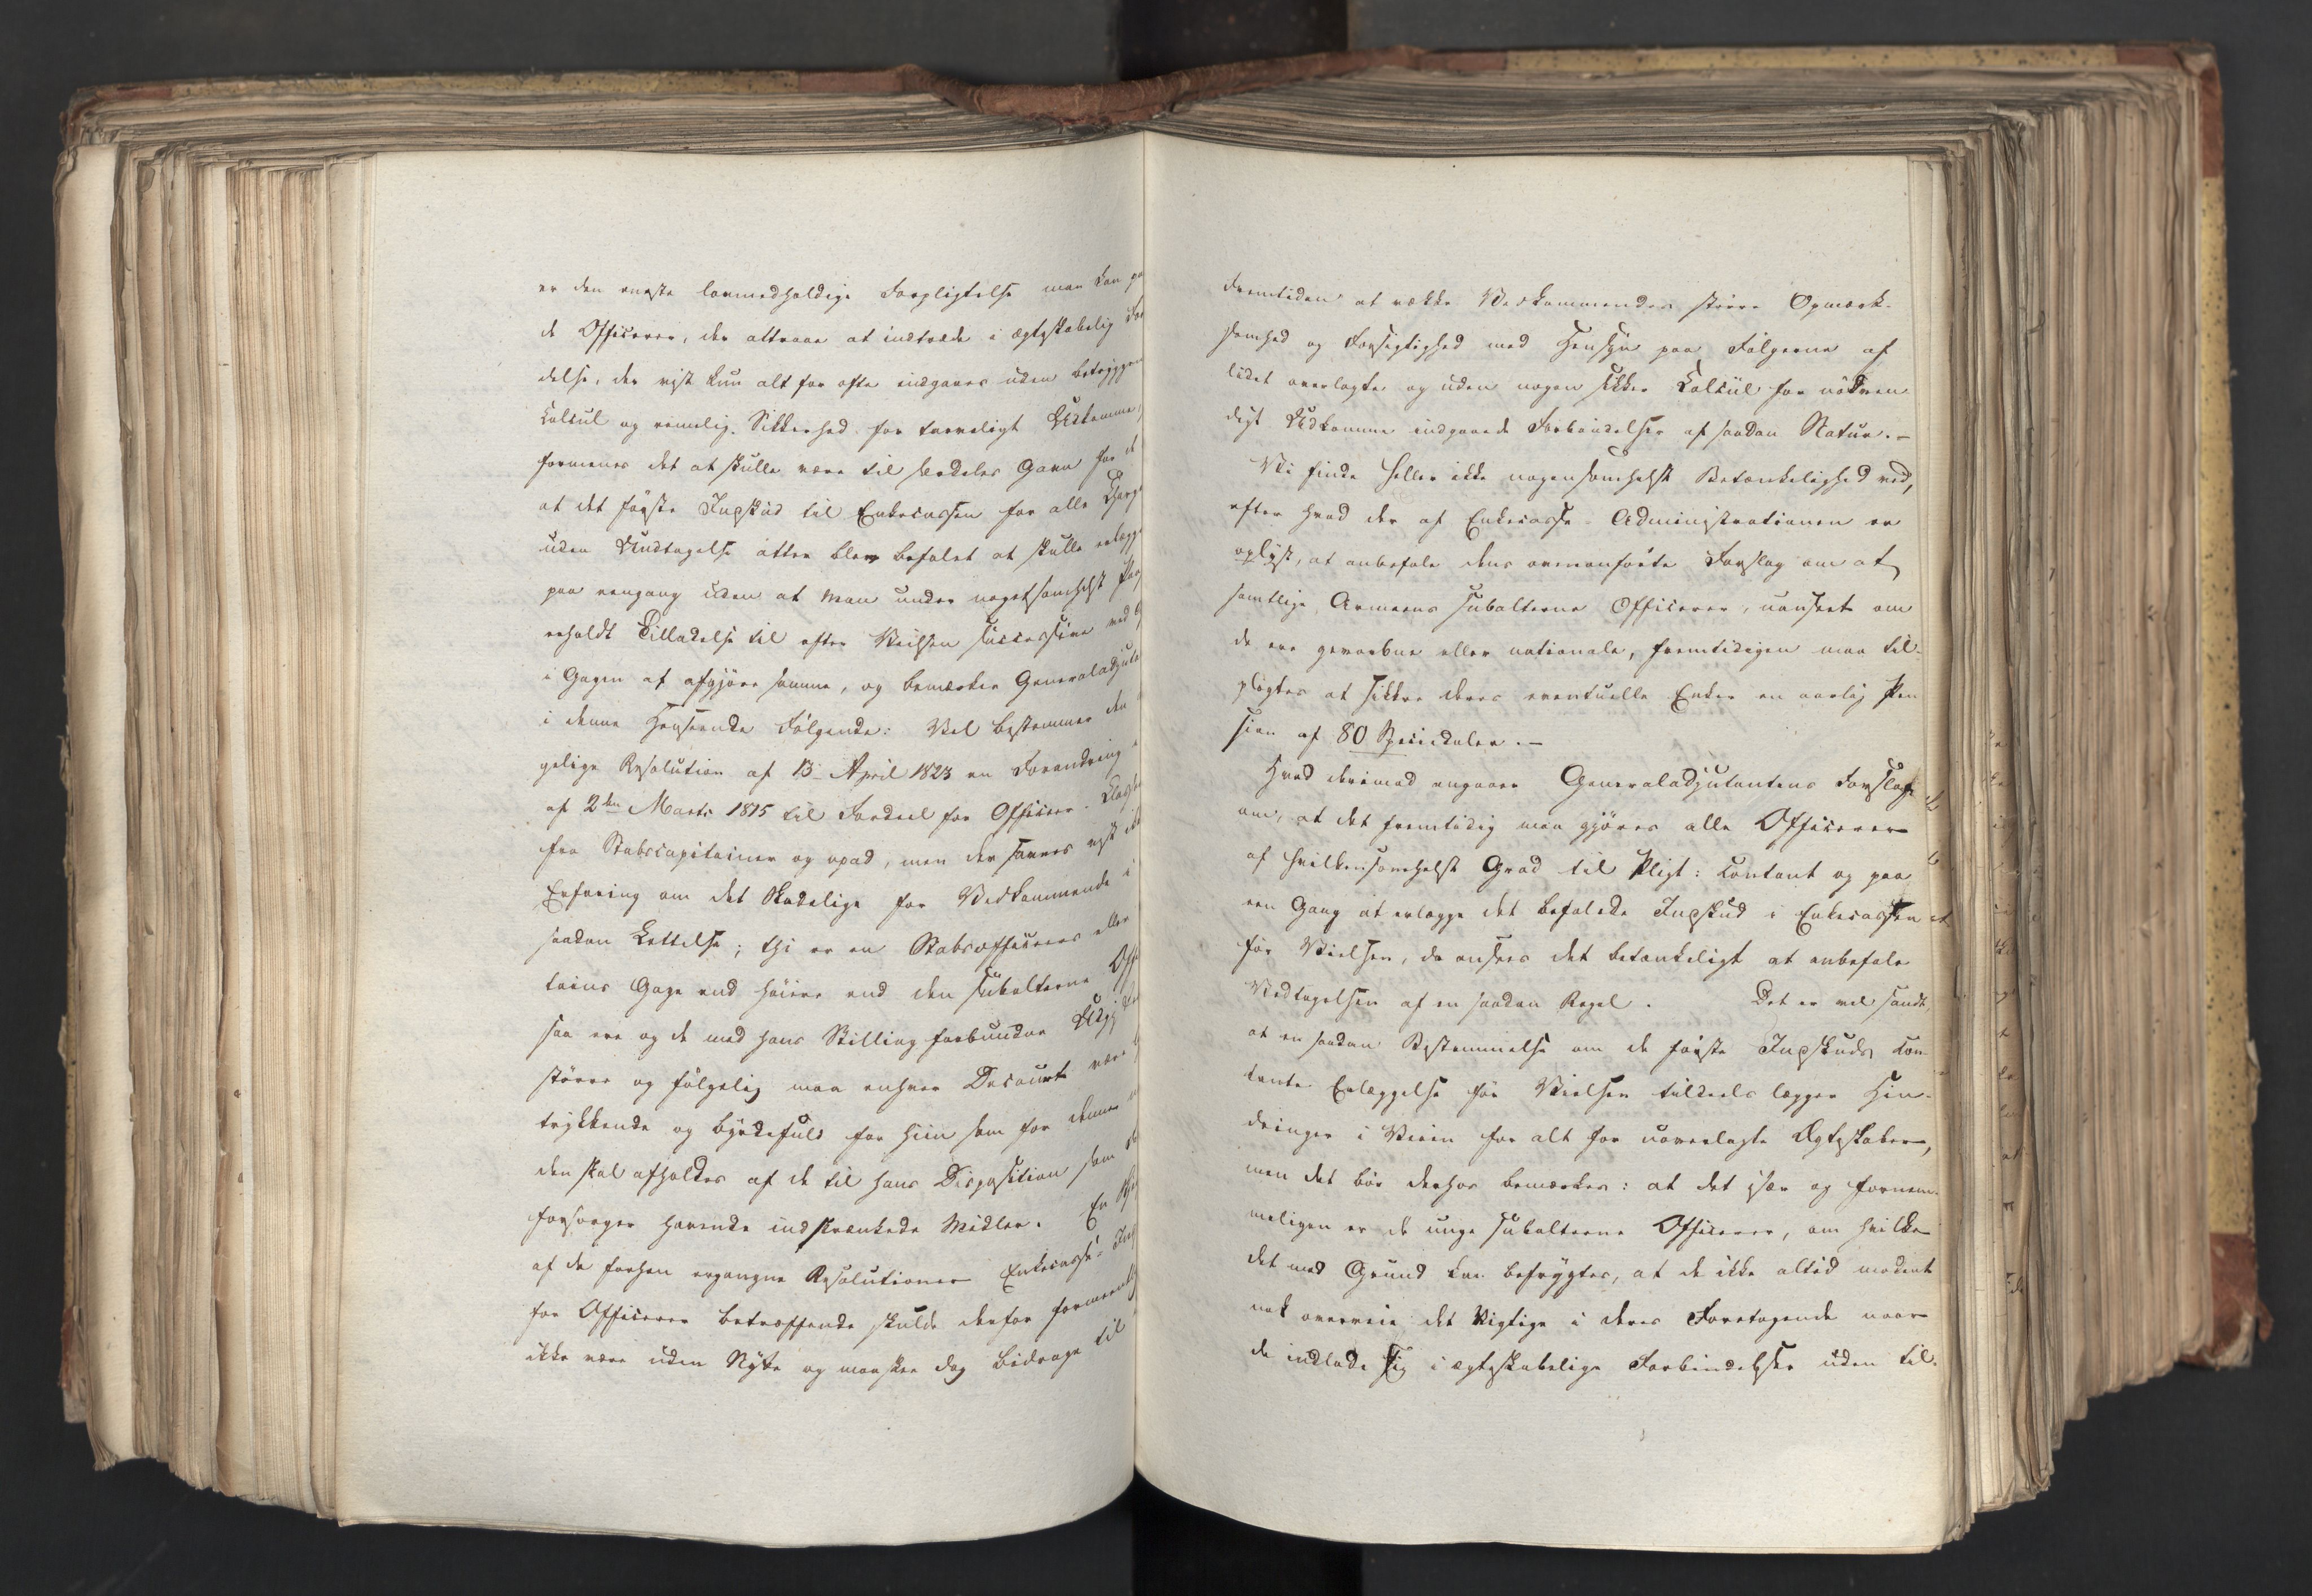 er den eneste lovmedholdige Forpligtelse man kan
de Officerer, der attraae at indtræde i ægteskabelig For
delse, der vist kun alt for ofte indgaaes uden betryggen
Calcul og rimelig Sikkerhed for tarveligt Udkomme,
formenes det at skulle være til særdeles Gavn for
at det første Inpskud til Enkecassen for alle
uden Undtagelse atter blev befalet at skulle erlægge
paa eengang uden at man under nogetsomhelst
erholdt Tilladelse til efter Vielsen successive ved
i Gagen at afgjøre samme, og bemærker Generaladjuta
i denne Henseende Følgende: Vel bestemmer den
gelige Resolution af 13 April 1823 en Forandring
af 2den Marts 1815 til Fordeel for Officeer-Classen
fra Stabscapitainer og opad, men der savnes vist ikke
Erfaring om det Skadelige for Vedkommende i
saadan Lettelse; thi er en Stabsofficeers eller
tains Gage end høiere end den subalterne Off
saa ere og de med hans Stilling forbundne Udgifter
større og følgelig maa enhver Decourt være
trykkende og byrdefuld for hiin som for denne
den skal afholdes af de til hans Disposition som
forsørger havende indskrænkede Midler. En
af de forhen ergangne Resolutioner Enkecasse-
for Officerer betræffende skulde derfor formeentlig
ikke være uden Nytte og maaskee dog bidrage til
Fremtiden at vække Vedkommendes større Opmærk-
somhed og Forsigtighed med Hensyn paa Følgerne af
lidet overlagte og uden nogen sikker Calcul for nødven
digt Udkomme indgaaede Forbindelser af saadan Natur. –
Vi finde heller ikke nogensomhelst Betænkelighed ved,
efter hvad der af Enkecasse-Administrationen er
oplyst, at anbefale dens ovenanførte Forslag om at
samtlige Armeens subalterne Officerer, uanseet om
de ere gevorbne eller nationale, fremtidigen maa til-
pligtes at sikkre deres eventuelle Enker en aarlig Pen
sion af 80 Speciedaler. –
Hvad derimod angaaer Generaladjutantens Forslag
om, at det fremtidig maa gjøres alle Officerer
af hvilkensomhelst Grad til Pligt: contant og paa
een Gang at erlægge det befalede Inpskud i Enkecassen
før Vielsen, da ansees det betænkeligt at anbefale
Vedtagelsen af en saadan Regel. Det er vel sandt,
at en saadan Bestemmelse om de første Inpskuds con-
tante Erlæggelse før Vielsen tildeels lægger Hin-
dringer i Veien for alt for uoverlagte Ægteskaber,
men det bør derhos bemærkes: at det især og fornem-
meligen er de unge subalterne Officerer, om hvilke
det med Grund kan befrygtes, at de ikke altid modent
nok overveie det Vigtige i deres Foretagende naar
de indlade sig i ægteskabelige Forbindelser uden til-